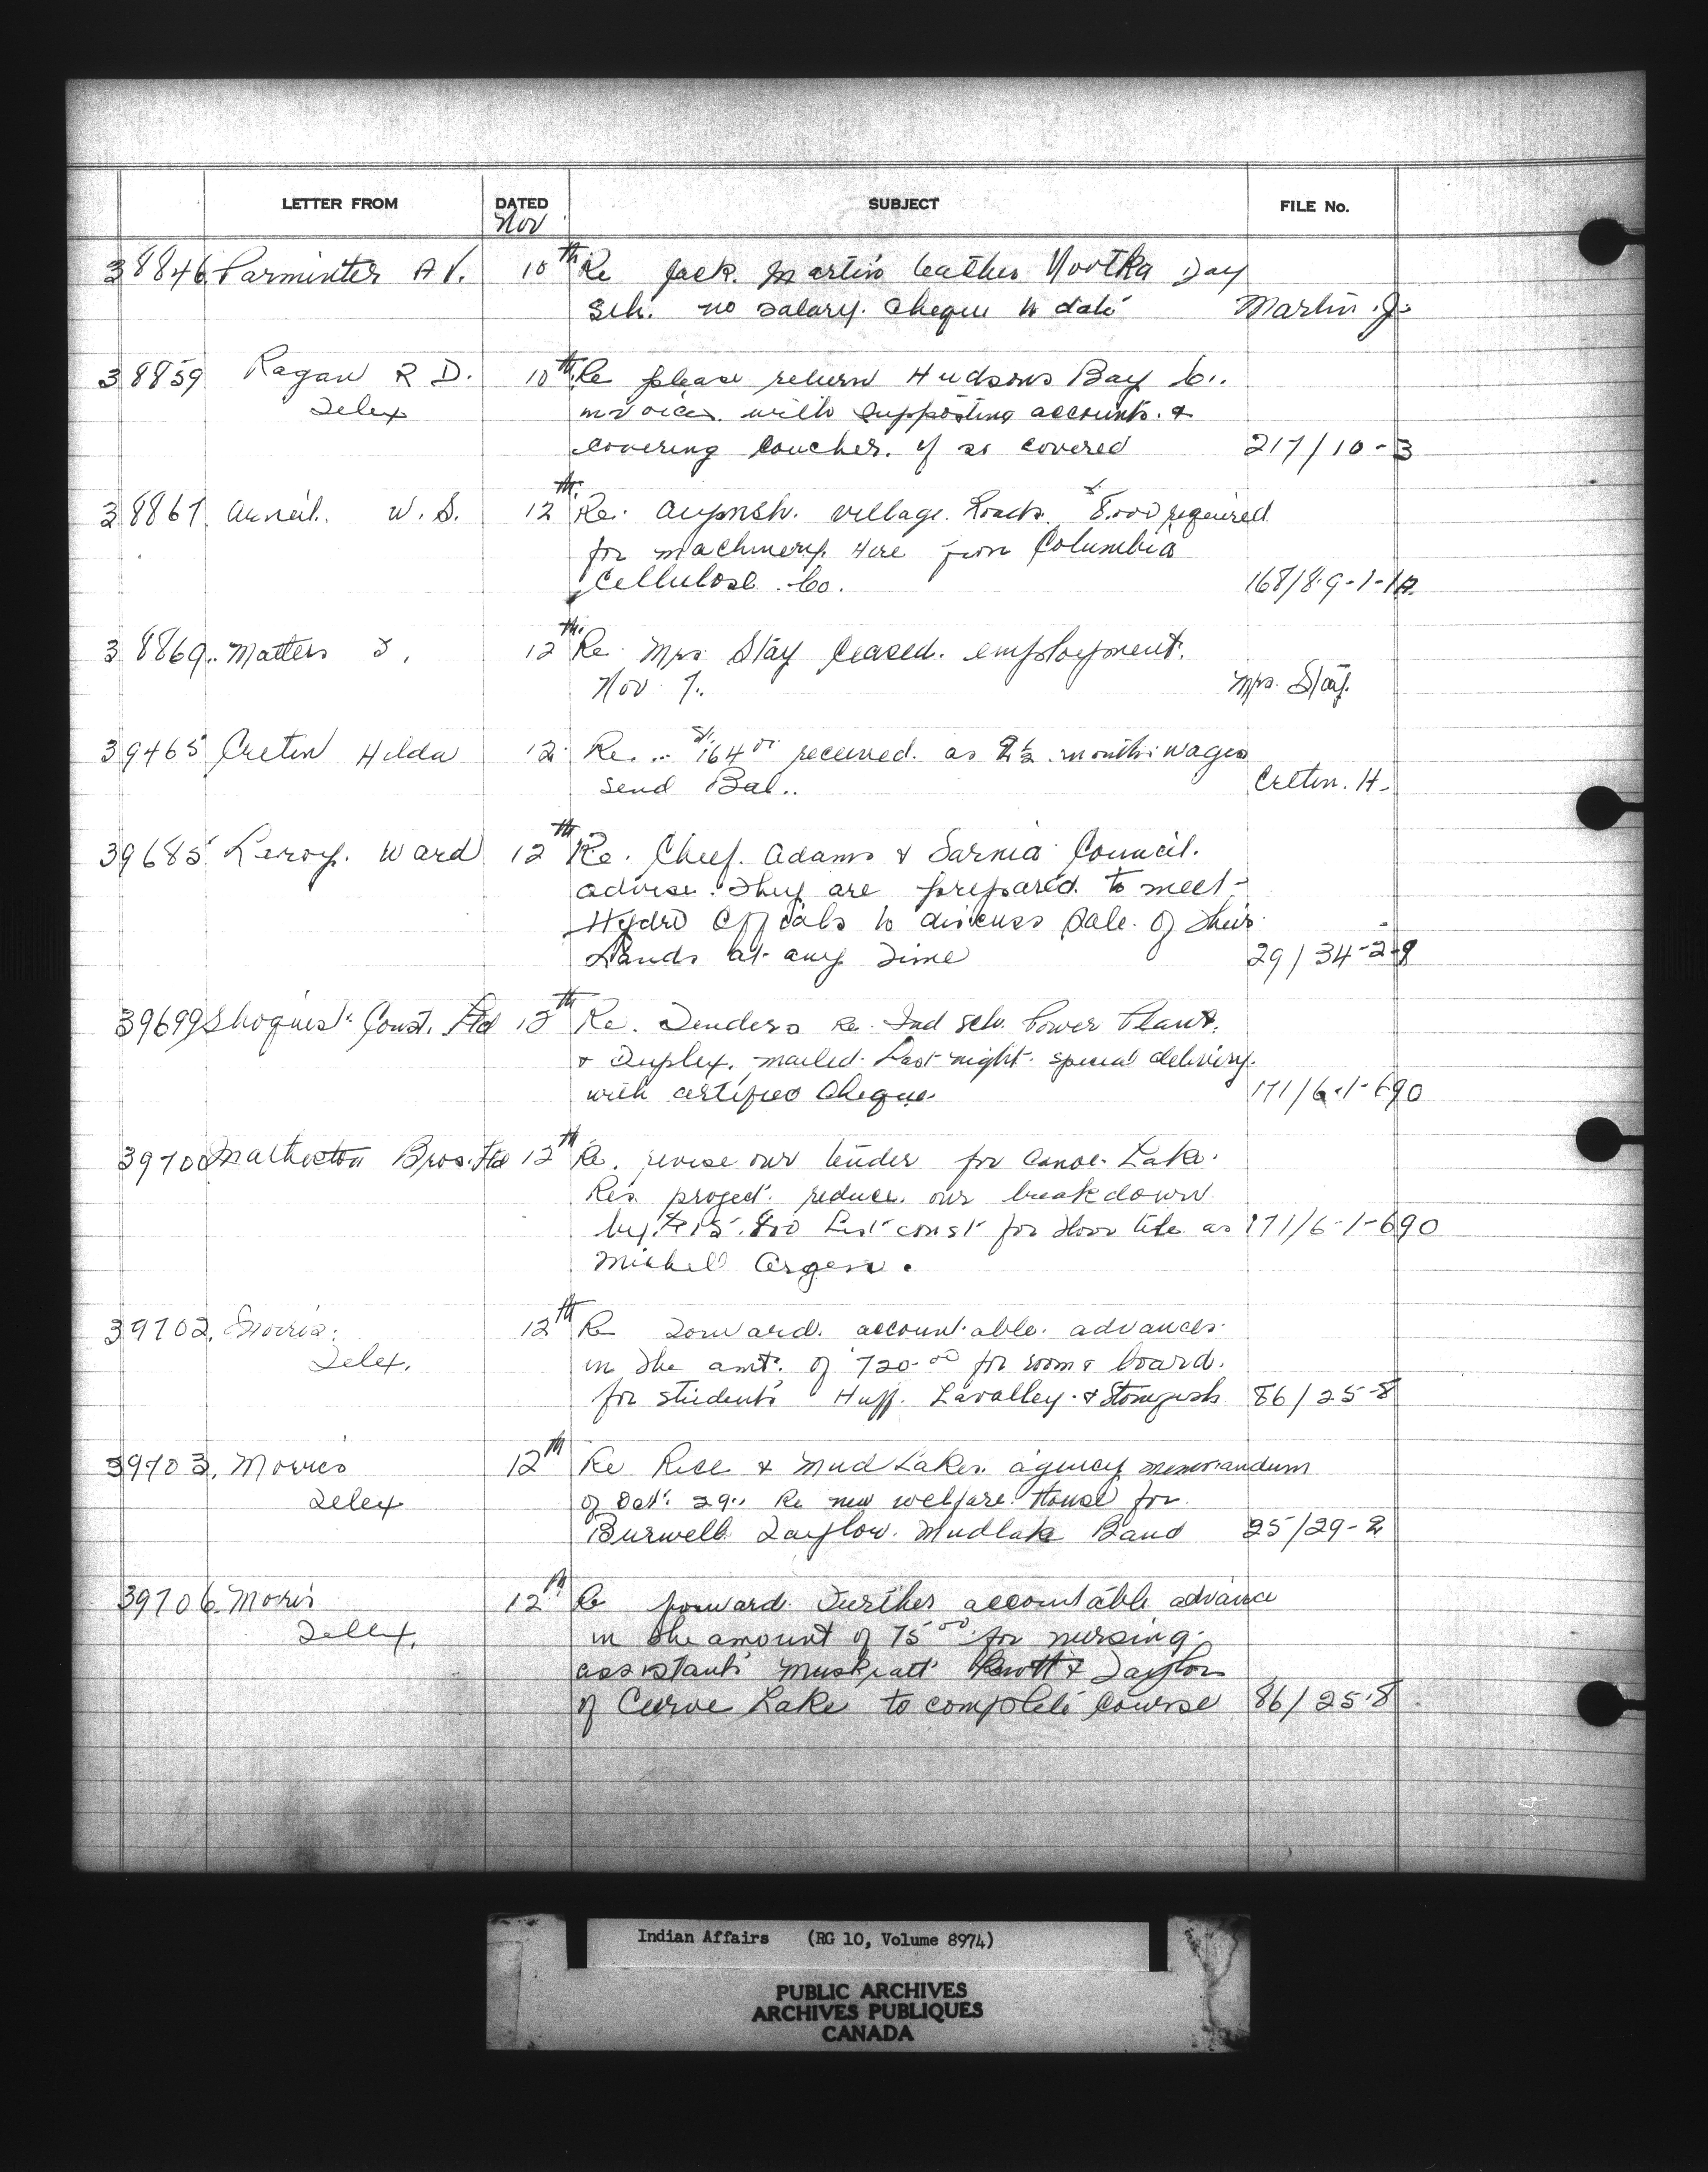 LETTER FROM DATED SUBJECT FILE No.
Nov
38846 Parminter A V. 10th Re Jack Martin teacher Nootka Day
Sch. no salary cheque to date Martin J.
38859 Ragan R D. 10th Re please return Hudsons Bay Co.
Telex invoices with supporting accounts &
covering voucher if so covered 217/10-3
38867 Arneil W. S. 12th Re. Aiyansh village Roads $8,000 required
for machinery Hire from Columbia
Cellulose Co. 168/8-9-1-1A
38869 Matters 12th Re Mrs Stay ceased employment
Nov 7. Mrs. Stay
39465 Creton Hilda 12 Re 164 00 received as 2½ months wages
send Bal.. Creton. H.
39685 Leroy Ward 12th Re. Chief Adams & Sarnia Council
advise they are prepared to meet
Hydro Officals to discuss sale of their
Lands at any time 29/34-2-9
39699 Shoquist Const. Ltd 12th Re. Tenders Re Ind Sch. Power Plant
& Duplex mailed Last night special delivery
with certified cheque 171/6-1-690
39700 Matheston Bros. Ltd 12th Re. revise our tender for Canoe Lake
Res project reduce our breakdown
by $15,800 const for floor tile as 171/6-1-690
Michell
39702. Morris 12th Re Forward accountable advances
Telex. in the amt. of 720.00 for room & board
for students Huff. Lavalley & 86/25-8
39703. Morris 12th Re Rice & Mud Lakes agency memorandum
Telex of Oct. 29. Re new welfare House for
Burwell Taylor Mudlake Band 25/29-2
39706 Morris 12th Re forward Further accountable advance
Telex. in the amount of 75 00 for nursing
assistants Muskratt Knott & Taylor
of Curve Lake to complete course 86/25-8
Indian Affairs (RG 10, Volume 8974)
PUBLIC ARCHIVES
ARCHIVES PUBLIQUES
CANADA